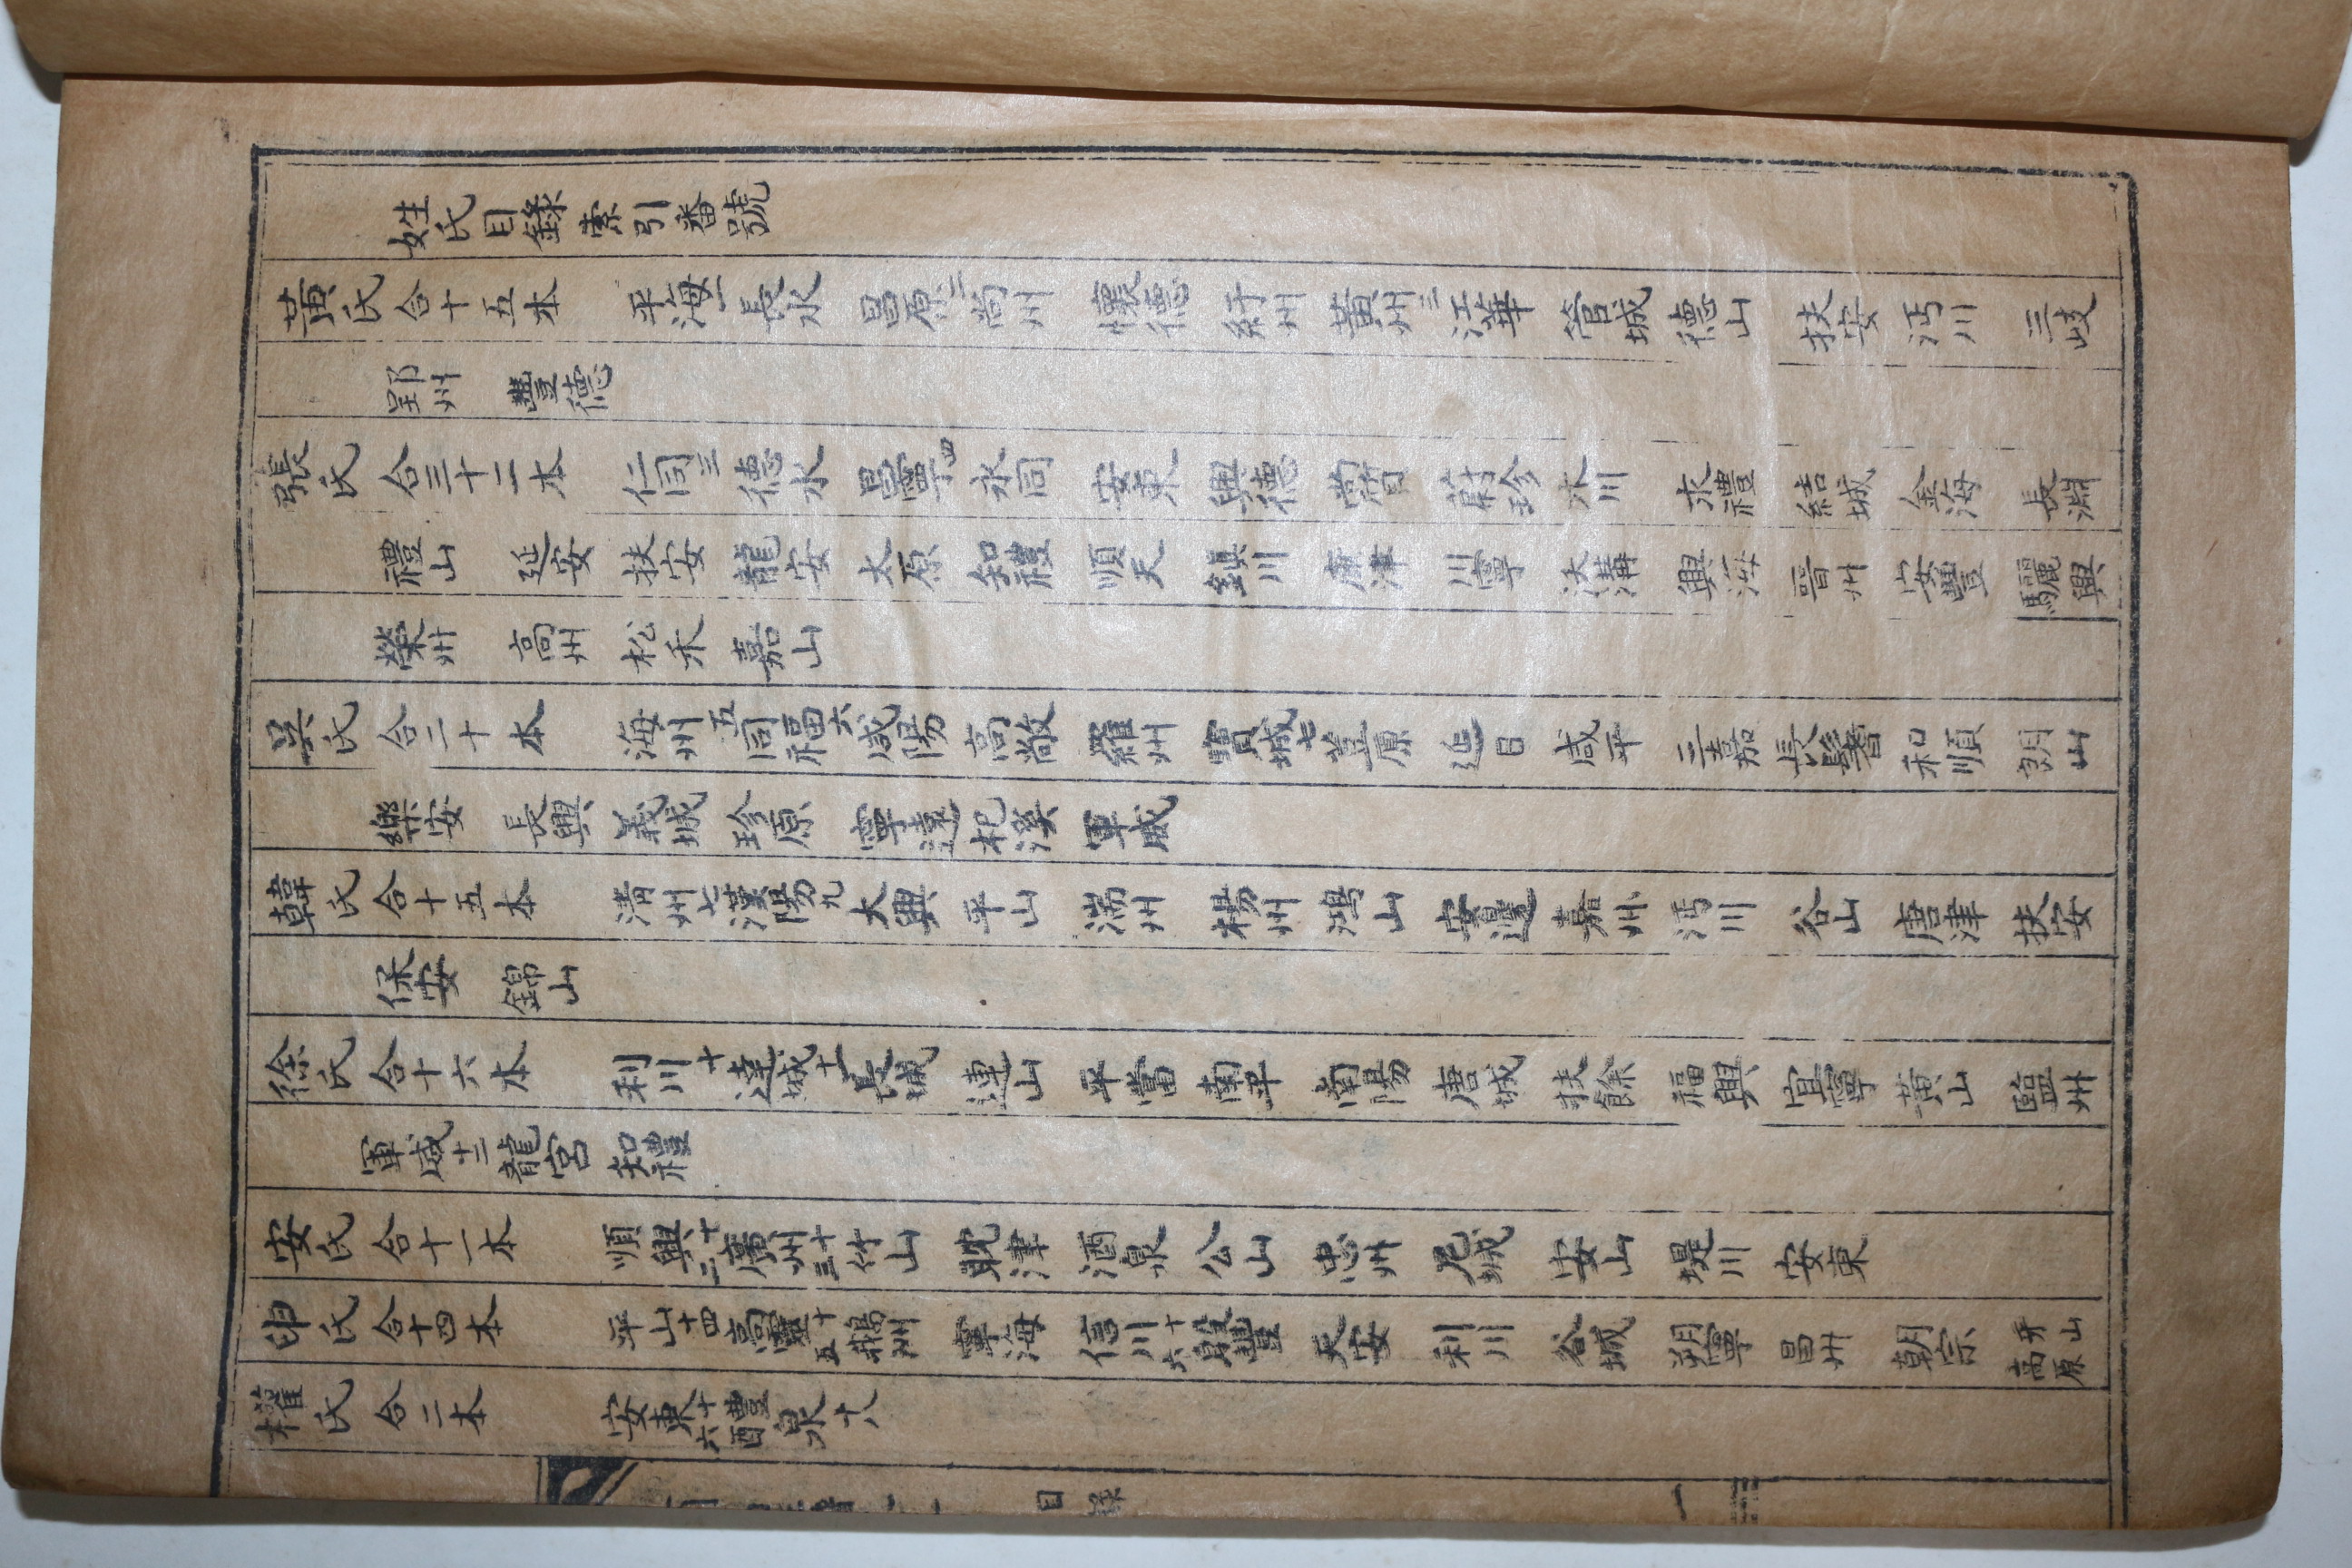 姓氏目錄索引番號
黃氏 合十五本 平海一 長水 昌原二 尚州 懷德 紆州 黃州三 江華 管城 德山 扶安 沔川 三岐
郢州 豐德
張氏 合三十二本 仁同三 德水 昌寧四 永同 安東 興德 蔚珍 木川 求禮 結城 金海 長淵
禮山 延安 扶安 龍安 太原 知禮 順天 鎭川 康津 川寧 沃溝 興海 晉州 安豐 驪興
榮州 高州 松禾 嘉山
吳氏 合二十本 海州五 同福六 咸陽 高敞 羅州 寶城七 荳原 延日 咸平 三嘉 長鬐 和順 朗山
樂安 長興 義城 珍原 寧遠 杞溪 軍威
韓氏 合十五本 淸州七 漢陽九 大興 平山 湍州 楊州 鴻山 安邊 嘉州 沔川 谷山 唐津 扶安
保安 錦山
徐氏 合十六本 利川十 達城十一 長城 連山 平當 南平 南陽 唐城 扶餘 福興 宜寧 黃山 塩州
軍威十二 龍宮 知禮
安氏 合十一本 順興十二 廣州十三 竹山 耽津 酒泉 公山 忠州 尼城 安山 堤川 安東
申氏 合十四本 平山十四 高靈十五 鵝洲 寧海 信川十六 殷豐 天安 利川 谷城 朔寧 昌州 朝宗 牙山 高原
權氏 合二本 安東十六 醴泉十八
目錄 一